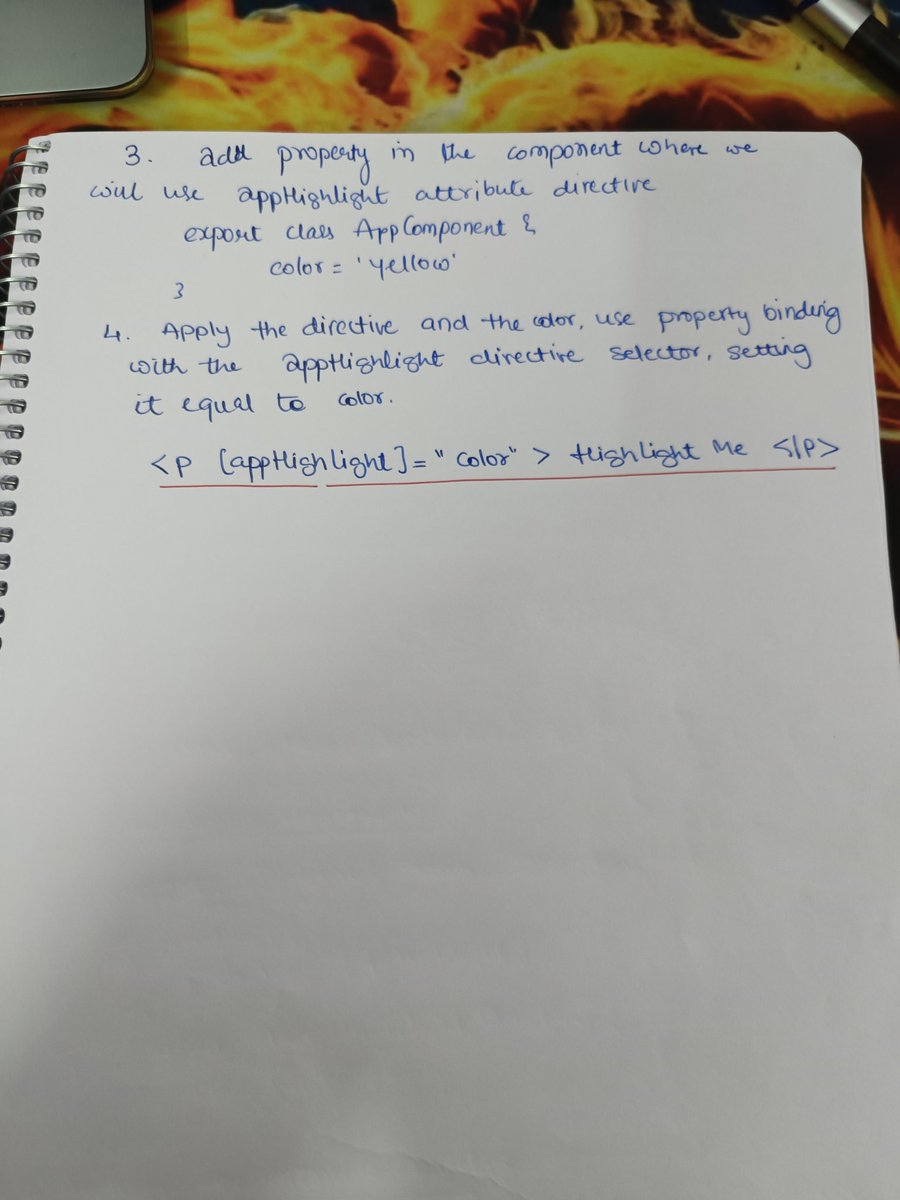 3. add property in the component where we
will use appHighlight attribute directive
export class AppComponent {
color = 'yellow'
}
4. Apply the directive and the color, use property binding
with the appHighlight directive selector, setting
it equal to color.
<p [appHighlight]="color"> Highlight Me </p>